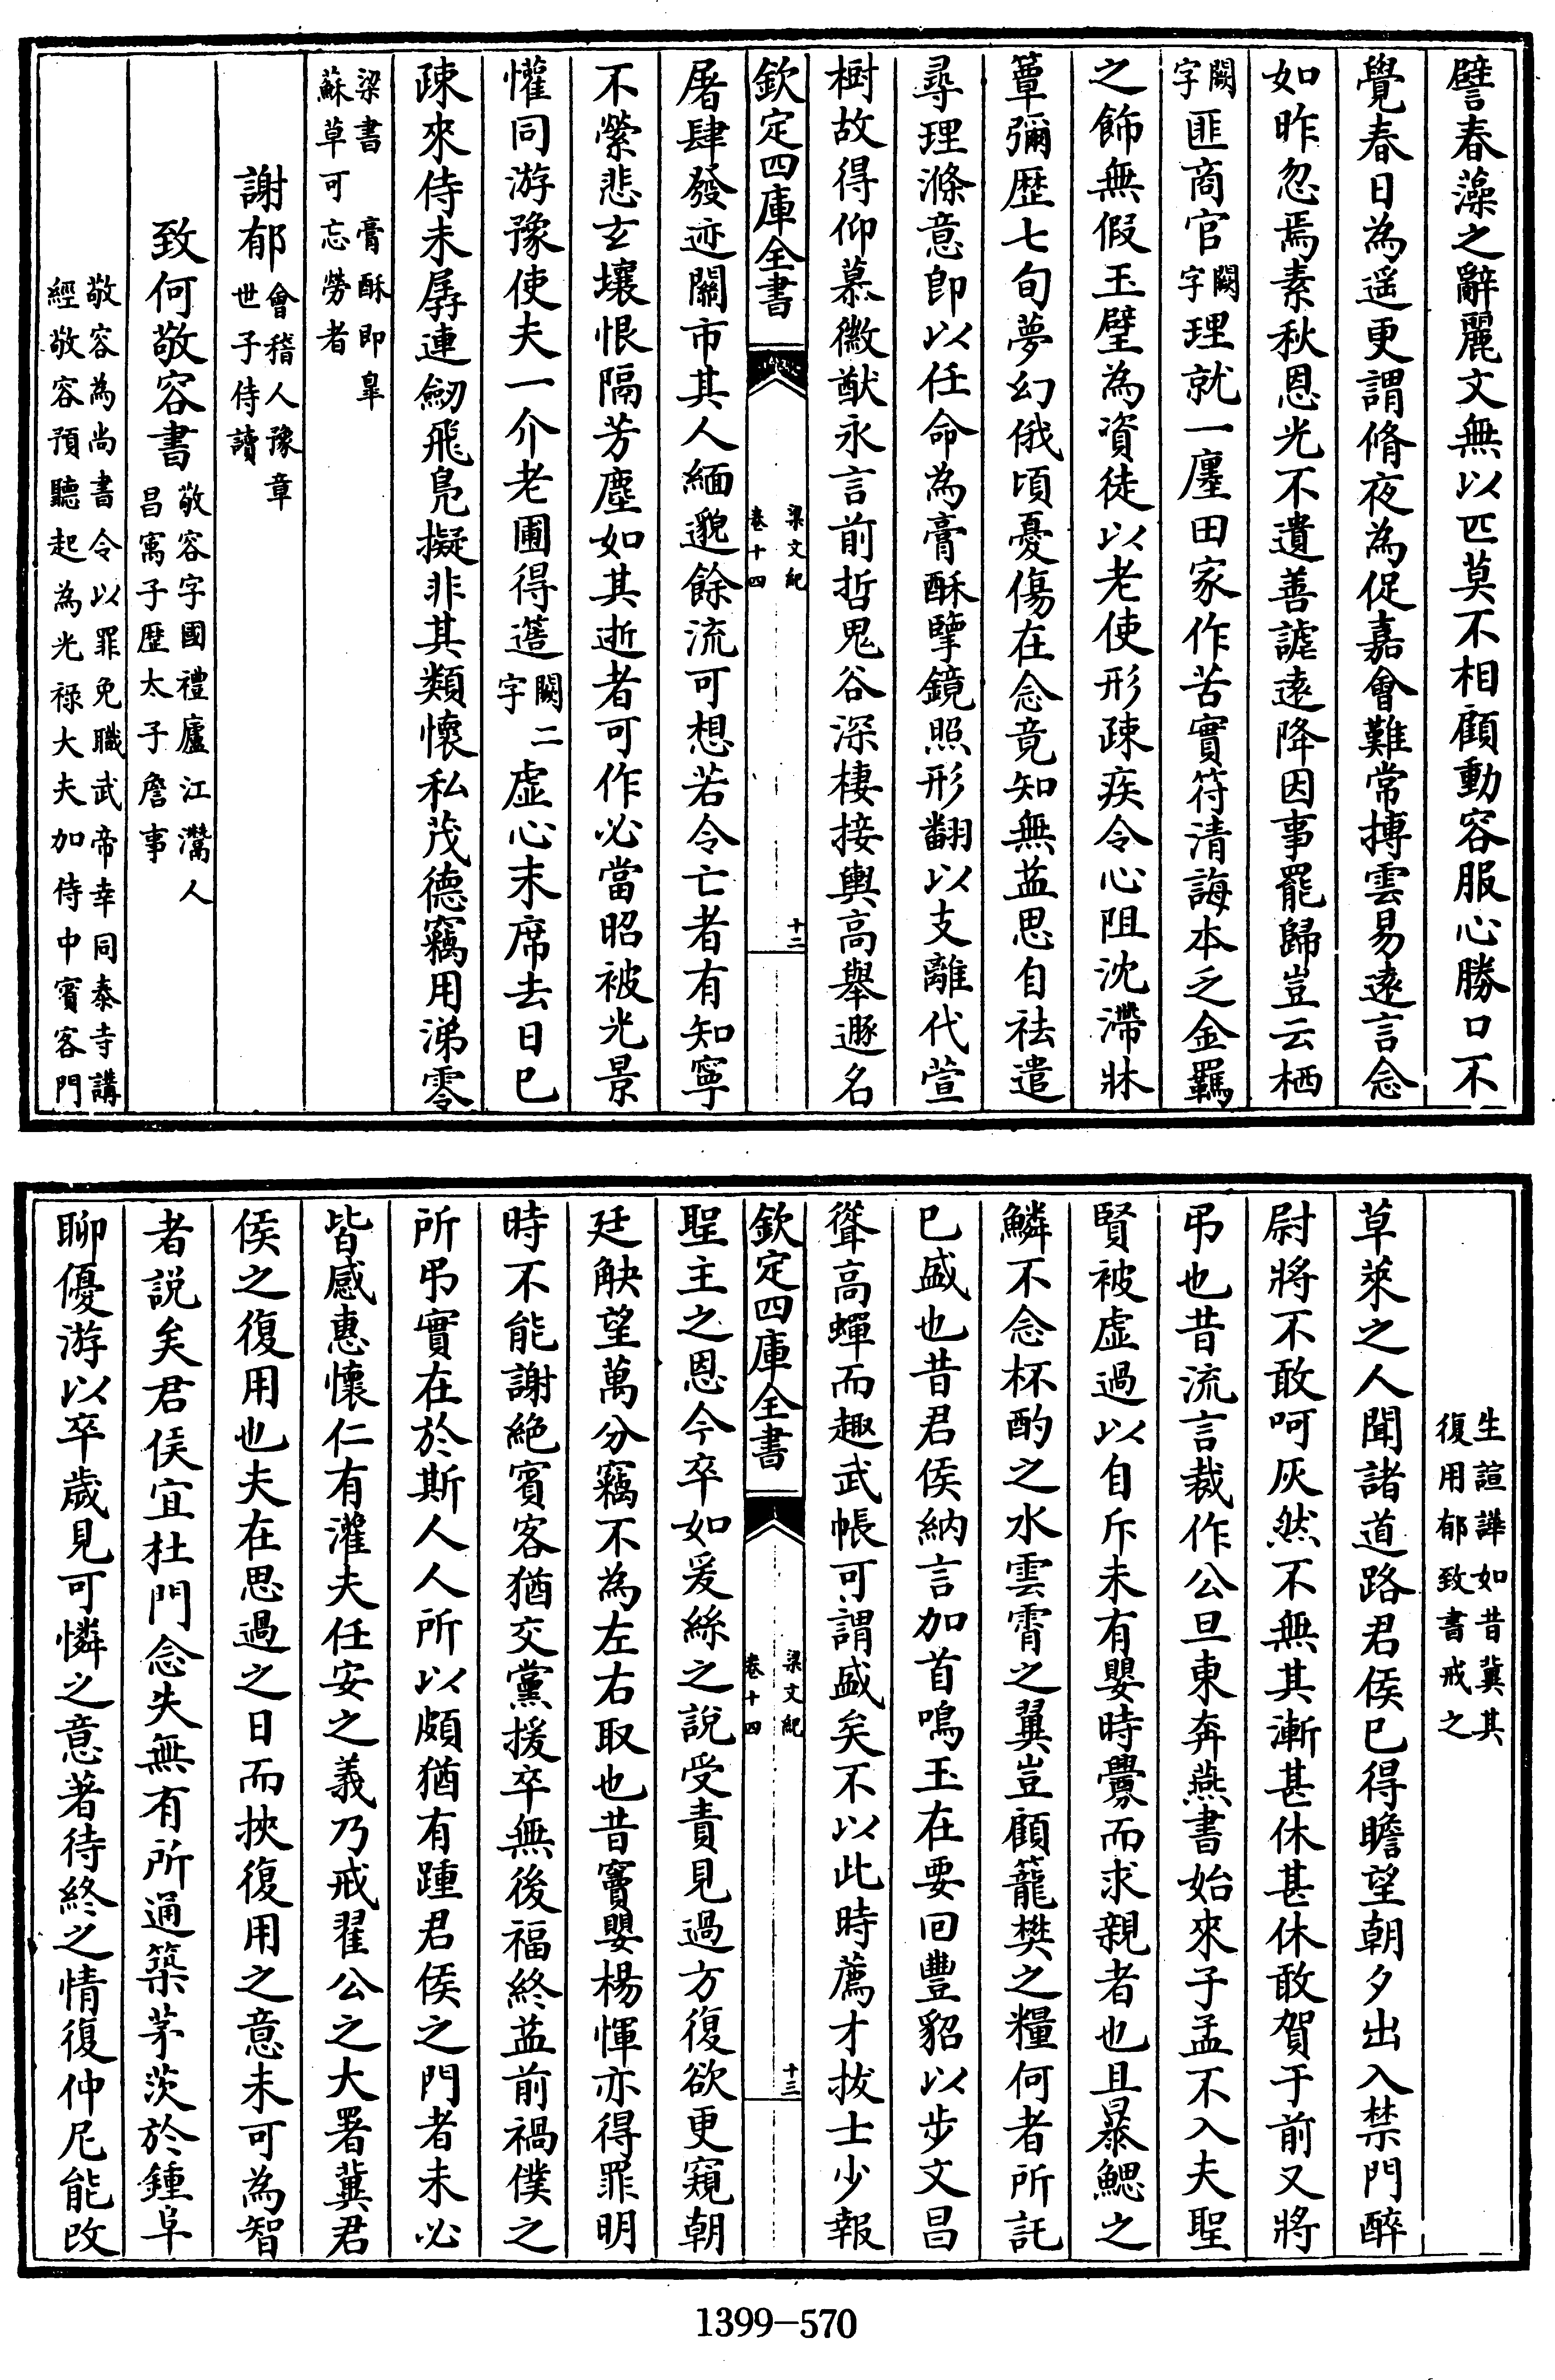 譬春藻之辭麗文無以匹莫不相顧動容服心勝口不
覺春日為遥更謂脩夜為促嘉會難常搏雲易遠言念
如昨忽焉素秋恩光不遺善謔遠降因事罷歸豈云栖
闕字匪商官闕字理就一廛田家作苦實符清誨本乏金羈
之飾無假玉璧為資徒以老使形疎疾令心阻沈滯牀
簟彌歴七旬夢幻俄頃憂傷在念竟知無益思自祛遣
尋理滌意即以任命為膏酥擥鏡照形翻以支離代萱
樹故得仰慕徽猷永言前哲鬼谷深棲接輿高舉遯名
欽定四庫全書
梁文紀
卷十四
十二
屠肆發迹關市其人緬邈餘流可想若令亡者有知寧
不縈悲玄壤恨隔芳塵如其逝者可作必當昭被光景
懽同游豫使夫一介老圃得簉闕二字虚心末席去日已
疎來侍未孱連劒飛鳧擬非其類懷私茂德竊用涕零
梁書 膏酥即皐
蘇草可忘勞者
謝郁會稽人豫章
世子侍讀
致何敬容書敬容字國禮廬江灊人
昌㝢子歴太子詹事
敬容為尚書令以罪免職武帝幸同泰寺講
經敬容預聽起為光禄大夫加侍中賓客門
生諠譁如昔冀其
復用郁致書戒之
草萊之人聞諸道路君侯已得瞻望朝夕出入禁門醉
尉將不敢呵灰然不無其漸甚休甚休敢賀于前又將
弔也昔流言裁作公旦東奔燕書始來子孟不入夫聖
賢被虚過以自斥未有嬰時釁而求親者也且暴鰓之
鱗不念杯酌之水雲霄之翼豈顧籠樊之糧何者所託
已盛也昔君侯納言加首鳴玉在要回豐貂以步文昌
聳高蟬而趣武帳可謂盛矣不以此時薦才拔士少報
欽定四庫全書
梁文紀
卷十四
十三
聖主之恩今卒如爰絲之說受責見過方復欲更窺朝
廷觖望萬分竊不為左右取也昔竇嬰楊惲亦得罪明
時不能謝絶賓客猶交黨援卒無後福終益前禍僕之
所弔實在於斯人人所以頗猶有踵君侯之門者未必
皆感惠懷仁有灌夫任安之義乃戒翟公之大署冀君
侯之復用也夫在思過之日而挾復用之意未可為智
者說矣君侯宜杜門念失無有所通築茅茨於鍾阜
聊優游以卒歲見可憐之意著待終之情復仲尼能改
1399-570